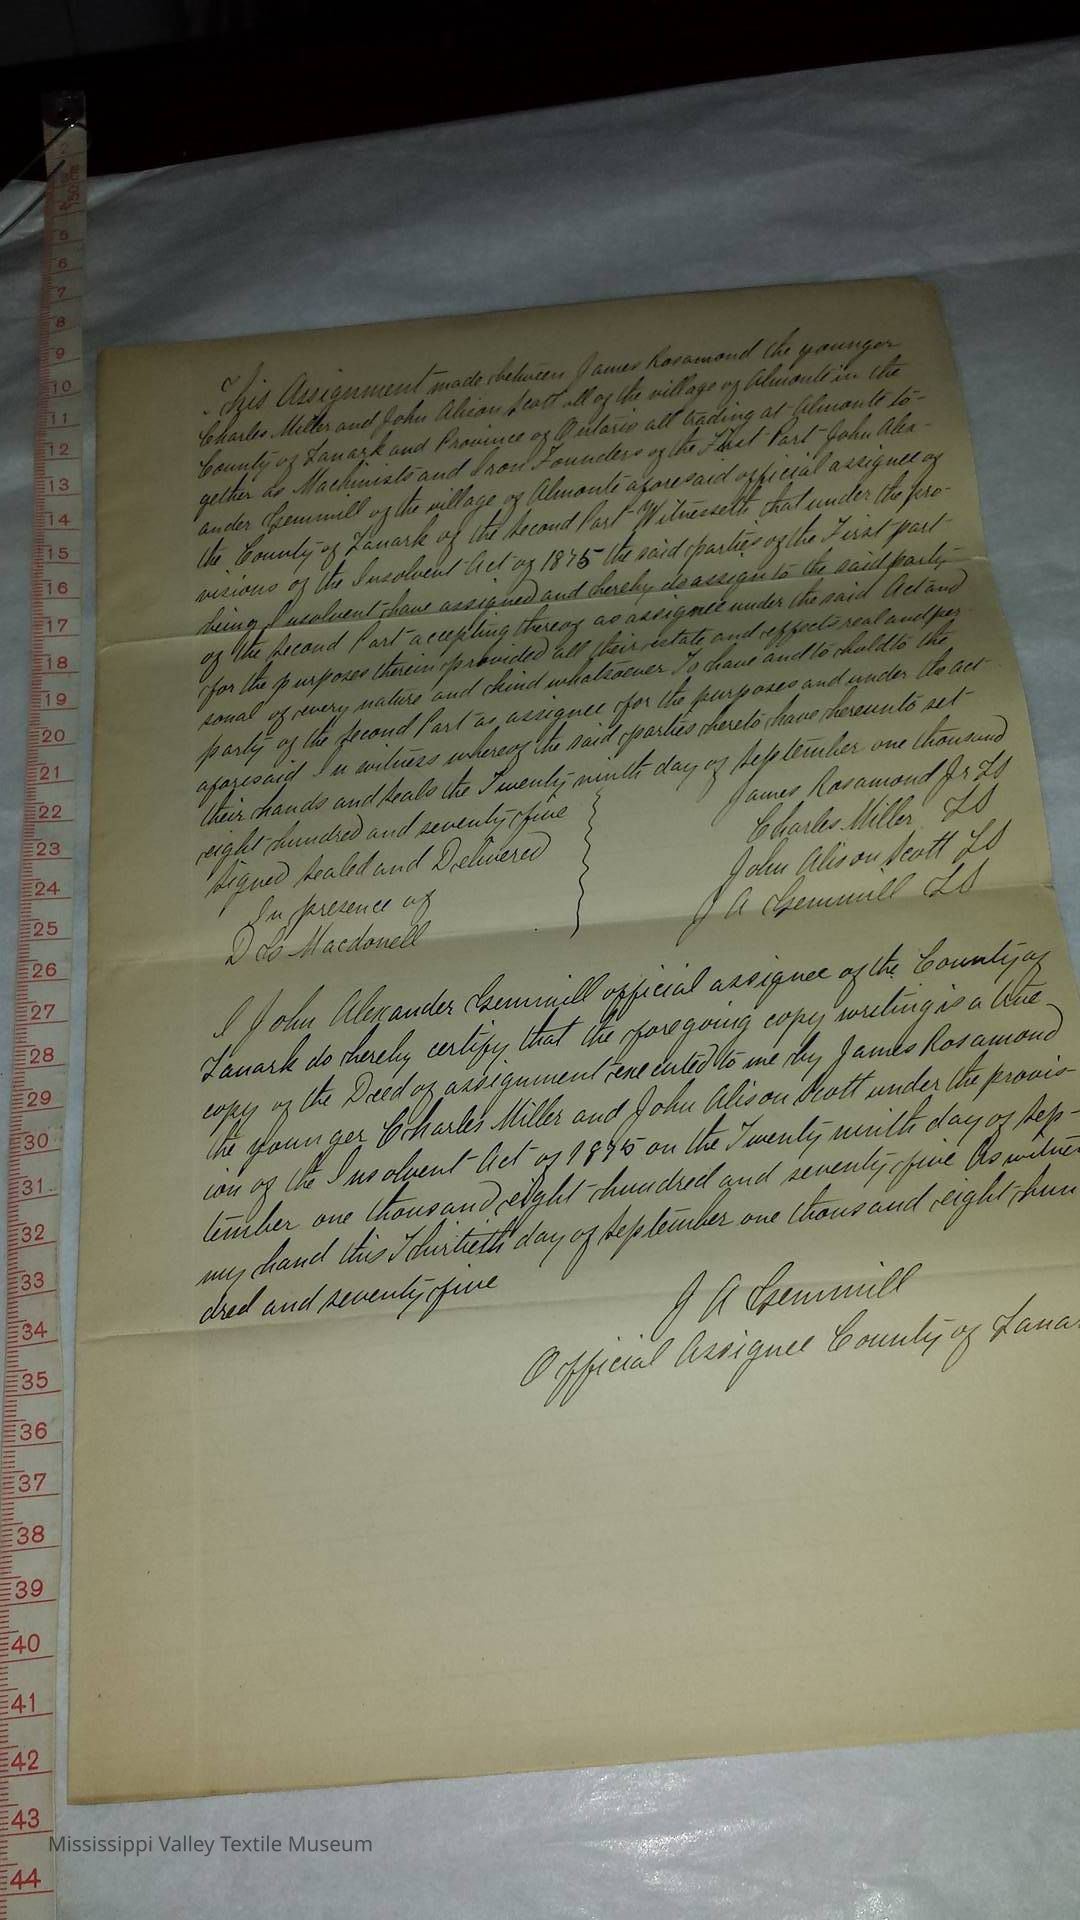 This Assignment made between James Rosamond the younger
Charles Miller and John Alison Scott all of the village of Almonte in the
County of Lanark and Province of Ontario all trading at Almonte to-
gether as Machinists and Iron Founders of the First Part John Alex-
ander Gemmill of the village of Almonte aforesaid official assignee of
the County of Lanark of the Second Part Witnesseth that under the pro-
visions of the Insolvent Act of 1875 the said parties of the First part
being Insolvent have assigned and hereby do assign to the said party
of the Second Part accepting thereof as assignee under the said Act and
for the purposes therein provided all their estate and effects real and per-
sonal of every nature and kind whatsoever To have and to hold to the
party of the Second Part as assignee for the purposes and under the act
aforesaid In witness whereof the said parties hereto have hereunto set
their hands and seals the Twenty ninth day of September one thousand
eight hundred and seventy five
Signed Sealed and Delivered
In presence of
D G Macdonell
James Rosamond Jr LS
Charles Miller LS
John Alison Scott LS
J A Gemmill LS
I John Alexander Gemmill official assignee of the County of
Lanark do hereby certify that the foregoing copy writing is a true
copy of the Deed of assignment executed to me by James Rosamond
the younger Charles Miller and John Alison Scott under the provis-
ion of the Insolvent Act of 1875 on the Twenty ninth day of Sep-
tember one thousand eight hundred and seventy five As witness
my hand this Thirtieth day of September one thousand eight hun
dred and seventy five
J A Gemmill
Official Assignee County of Lanar
5
6
7
8
9
10
11
12
13
14
15
16
17
18
19
20
21
22
23
24
25
26
27
28
29
30
31
32
33
34
35
36
37
38
39
40
41
42
43
44
Mississippi Valley Textile Museum